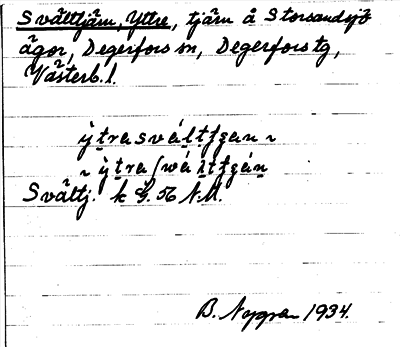 Svälttjärn, Yttre, tjärn å Storsandsjö
ägor, Degerfors sn, Degerfors tg,
Västerb. l.
ỳtrasvált
~ ỳtra
Svältj. k G. 56 N.M.
B. Nygren 1934.